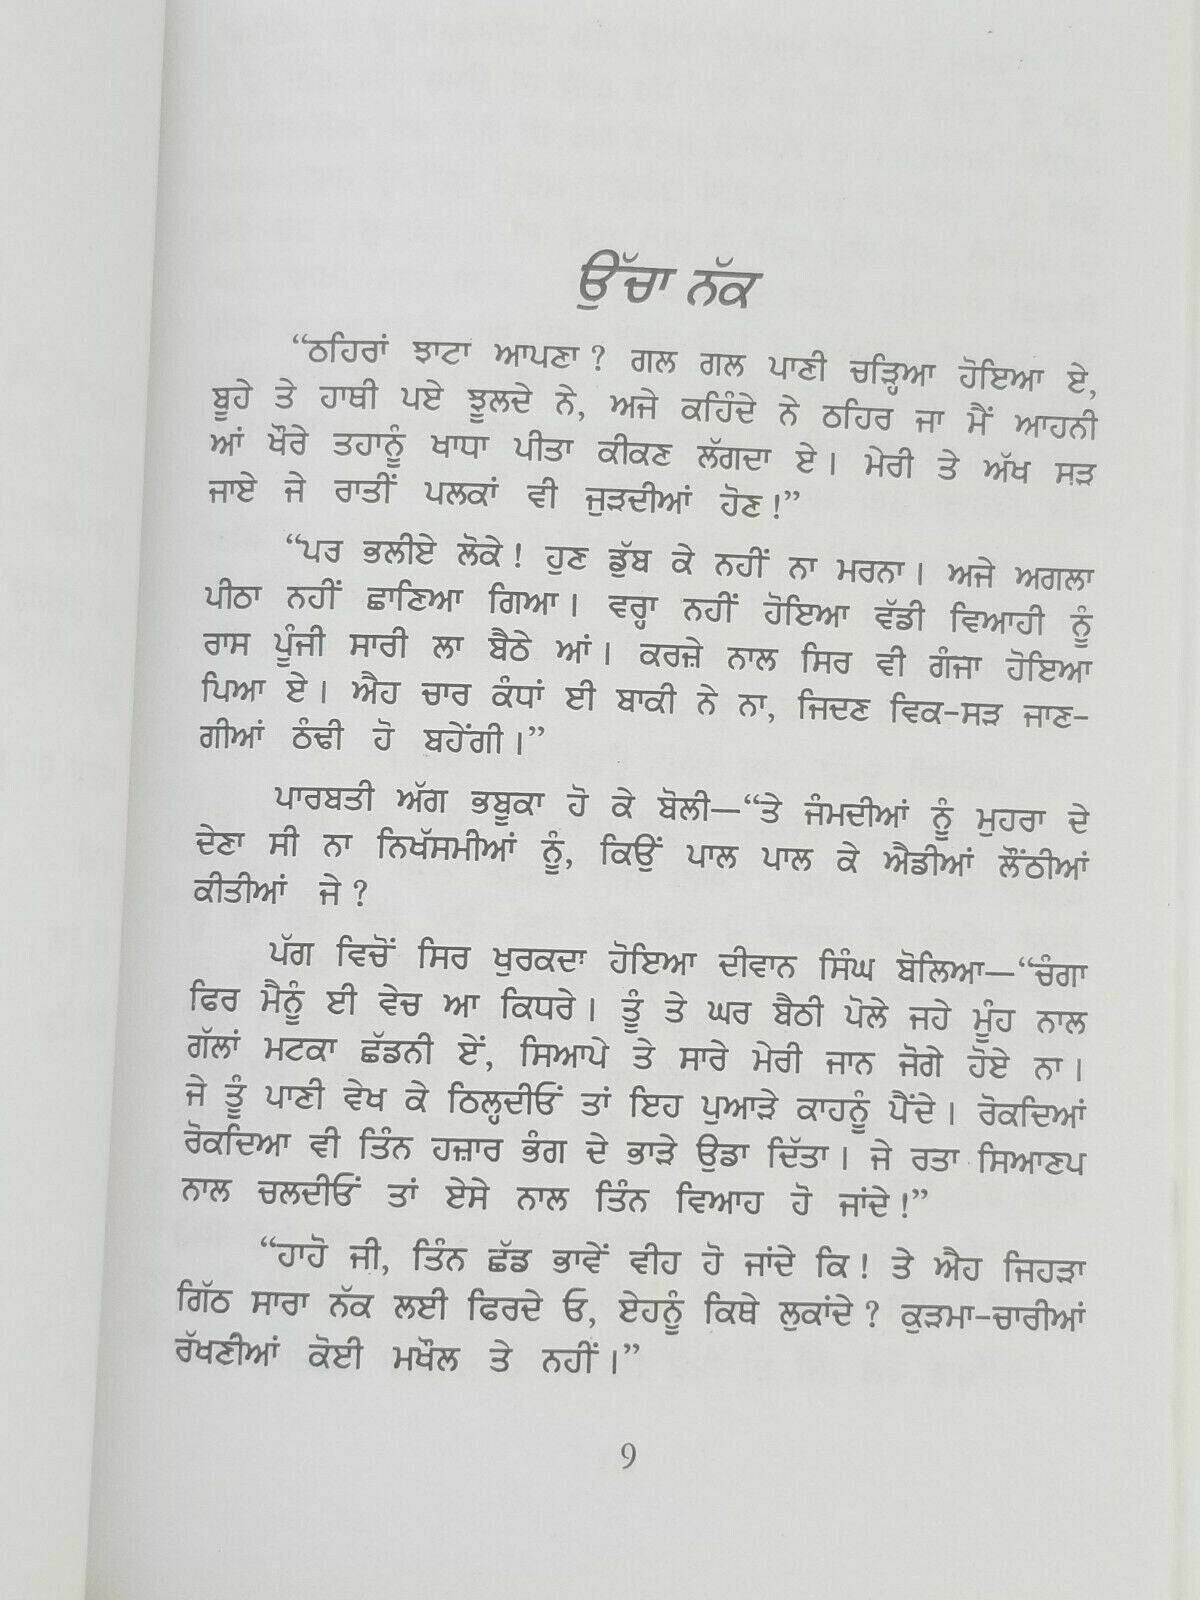 ਉੱਚਾ ਨੱਕ
“ਠਹਿਰਾਂ ਝਾਟਾ ਆਪਣਾ? ਗਲ ਗਲ ਪਾਣੀ ਚੜ੍ਹਿਆ ਹੋਇਆ ਏ,
ਬੂਹੇ ਤੇ ਹਾਥੀ ਪਏ ਝੂਲਦੇ ਨੇ, ਅਜੇ ਕਹਿੰਦੇ ਨੇ ਠਹਿਰ ਜਾ ਮੈਂ ਆਹਨੀ
ਆਂ ਖੌਰੇ ਤਹਾਨੂੰ ਖਾਧਾ ਪੀਤਾ ਕੀਕਣ ਲੱਗਦਾ ਏ। ਮੇਰੀ ਤੇ ਅੱਖ ਸੜ
ਜਾਏ ਜੇ ਰਾਤੀਂ ਪਲਕਾਂ ਵੀ ਜੁੜਦੀਆਂ ਹੋਣ!”
“ਪਰ ਭਲੀਏ ਲੋਕੇ! ਹੁਣ ਡੁੱਬ ਕੇ ਨਹੀਂ ਨਾ ਮਰਨਾ। ਅਜੇ ਅਗਲਾ
ਪੀਠਾ ਨਹੀਂ ਛਾਣਿਆ ਗਿਆ। ਵਰ੍ਹਾ ਨਹੀਂ ਹੋਇਆ ਵੱਡੀ ਵਿਆਹੀ ਨੂੰ
ਰਾਸ ਪੂੰਜੀ ਸਾਰੀ ਲਾ ਬੈਠੇ ਆਂ। ਕਰਜ਼ੇ ਨਾਲ ਸਿਰ ਵੀ ਗੰਜਾ ਹੋਇਆ
ਪਿਆ ਏ। ਐਹ ਚਾਰ ਕੰਧਾਂ ਈ ਬਾਕੀ ਨੇ ਨਾ, ਜਿਦਣ ਵਿਕ-ਸੜ ਜਾਣ-
ਗੀਆਂ ਠੰਢੀ ਹੋ ਬਹੇਂਗੀ।”
ਪਾਰਬਤੀ ਅੱਗ ਭਬੂਕਾ ਹੋ ਕੇ ਬੋਲੀ—“ਤੇ ਜੰਮਦੀਆਂ ਨੂੰ ਮੁਹਰਾ ਦੇ
ਦੇਣਾ ਸੀ ਨਾ ਨਿਖੱਸਮੀਆਂ ਨੂੰ, ਕਿਉਂ ਪਾਲ ਪਾਲ ਕੇ ਐਡੀਆਂ ਲੌਂਠੀਆਂ
ਕੀਤੀਆਂ ਜੇ?
ਪੱਗ ਵਿਚੋਂ ਸਿਰ ਖੁਰਕਦਾ ਹੋਇਆ ਦੀਵਾਨ ਸਿੰਘ ਬੋਲਿਆ—“ਚੰਗਾ
ਫਿਰ ਮੈਨੂੰ ਈ ਵੇਚ ਆ ਕਿਧਰੇ। ਤੂੰ ਤੇ ਘਰ ਬੈਠੀ ਪੋਲੇ ਜਹੇ ਮੂੰਹ ਨਾਲ
ਗੱਲਾਂ ਮਟਕਾ ਛੱਡਨੀ ਏਂ, ਸਿਆਪੇ ਤੇ ਸਾਰੇ ਮੇਰੀ ਜਾਨ ਜੋਗੇ ਹੋਏ ਨਾ।
ਜੇ ਤੂੰ ਪਾਣੀ ਵੇਖ ਕੇ ਠਿਲ੍ਹਦੀਓਂ ਤਾਂ ਇਹ ਪੁਆੜੇ ਕਾਹਨੂੰ ਪੈਂਦੇ। ਰੋਕਦਿਆਂ
ਰੋਕਦਿਆ ਵੀ ਤਿੰਨ ਹਜ਼ਾਰ ਭੰਗ ਦੇ ਭਾੜੇ ਉਡਾ ਦਿੱਤਾ। ਜੇ ਰਤਾ ਸਿਆਣਪ
ਨਾਲ ਚਲਦੀਓਂ ਤਾਂ ਏਸੇ ਨਾਲ ਤਿੰਨ ਵਿਆਹ ਹੋ ਜਾਂਦੇ!”
“ਹਾਹੋ ਜੀ, ਤਿੰਨ ਛੱਡ ਭਾਵੇਂ ਵੀਹ ਹੋ ਜਾਂਦੇ ਕਿ! ਤੇ ਐਹ ਜਿਹੜਾ
ਗਿੱਠ ਸਾਰਾ ਨੱਕ ਲਈ ਫਿਰਦੇ ਓ, ਏਹਨੂੰ ਕਿਥੇ ਲੁਕਾਂਦੇ? ਕੁੜਮਾ-ਚਾਰੀਆਂ
ਰੱਖਣੀਆਂ ਕੋਈ ਮਖੌਲ ਤੇ ਨਹੀਂ।”
9